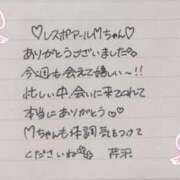 ♡レスポアールMちゃん♡
ありがとうございました。
今回も会えて嬉しい〜!!
忙しい中、会いに来てくれて
本当にありがとう♡
Mちゃんも体調気をつけて
くださいね 芹沢